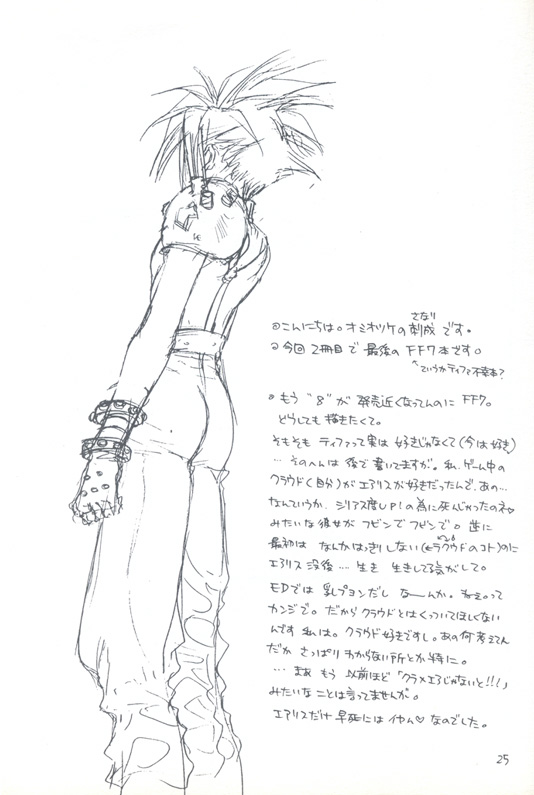 さなり
◎こんにちは。オミオツケの刺成です。
◎今回2冊目で最後のFF7本です。
ていうかティファ不幸本?
◎もう"8"が発売近くなってんのにFF7。
どうしても描きたくて。
そもそもティファって実は好きじゃなくて(今は好き)
…そのへんは後で書いてますが。私、ゲーム中の
クラウド(自分)がエアリスが好きだったんで、あの…
なんていうか、シリアス度UP!の為に死んじゃったのネ
みたいな彼女がフビンでフビンで。逆に
最初はなんかはっきりしない(←クラウドのコト)のに
エアリス没後…生き生きしてる気がして。
EDでは乳プヨンだしなーんか。って
カンジで。だからクラウドとはくっついてほしくない
んです私は。クラウド好きですし。あの何考えてん
だかさっぱりわからない所とか特に。
…まあもう以前ほど「クラ×エアじゃないと!!!」
みたいなことは言ってませんが。
エアリスだけ早死にはイヤん♡なのでした。
25